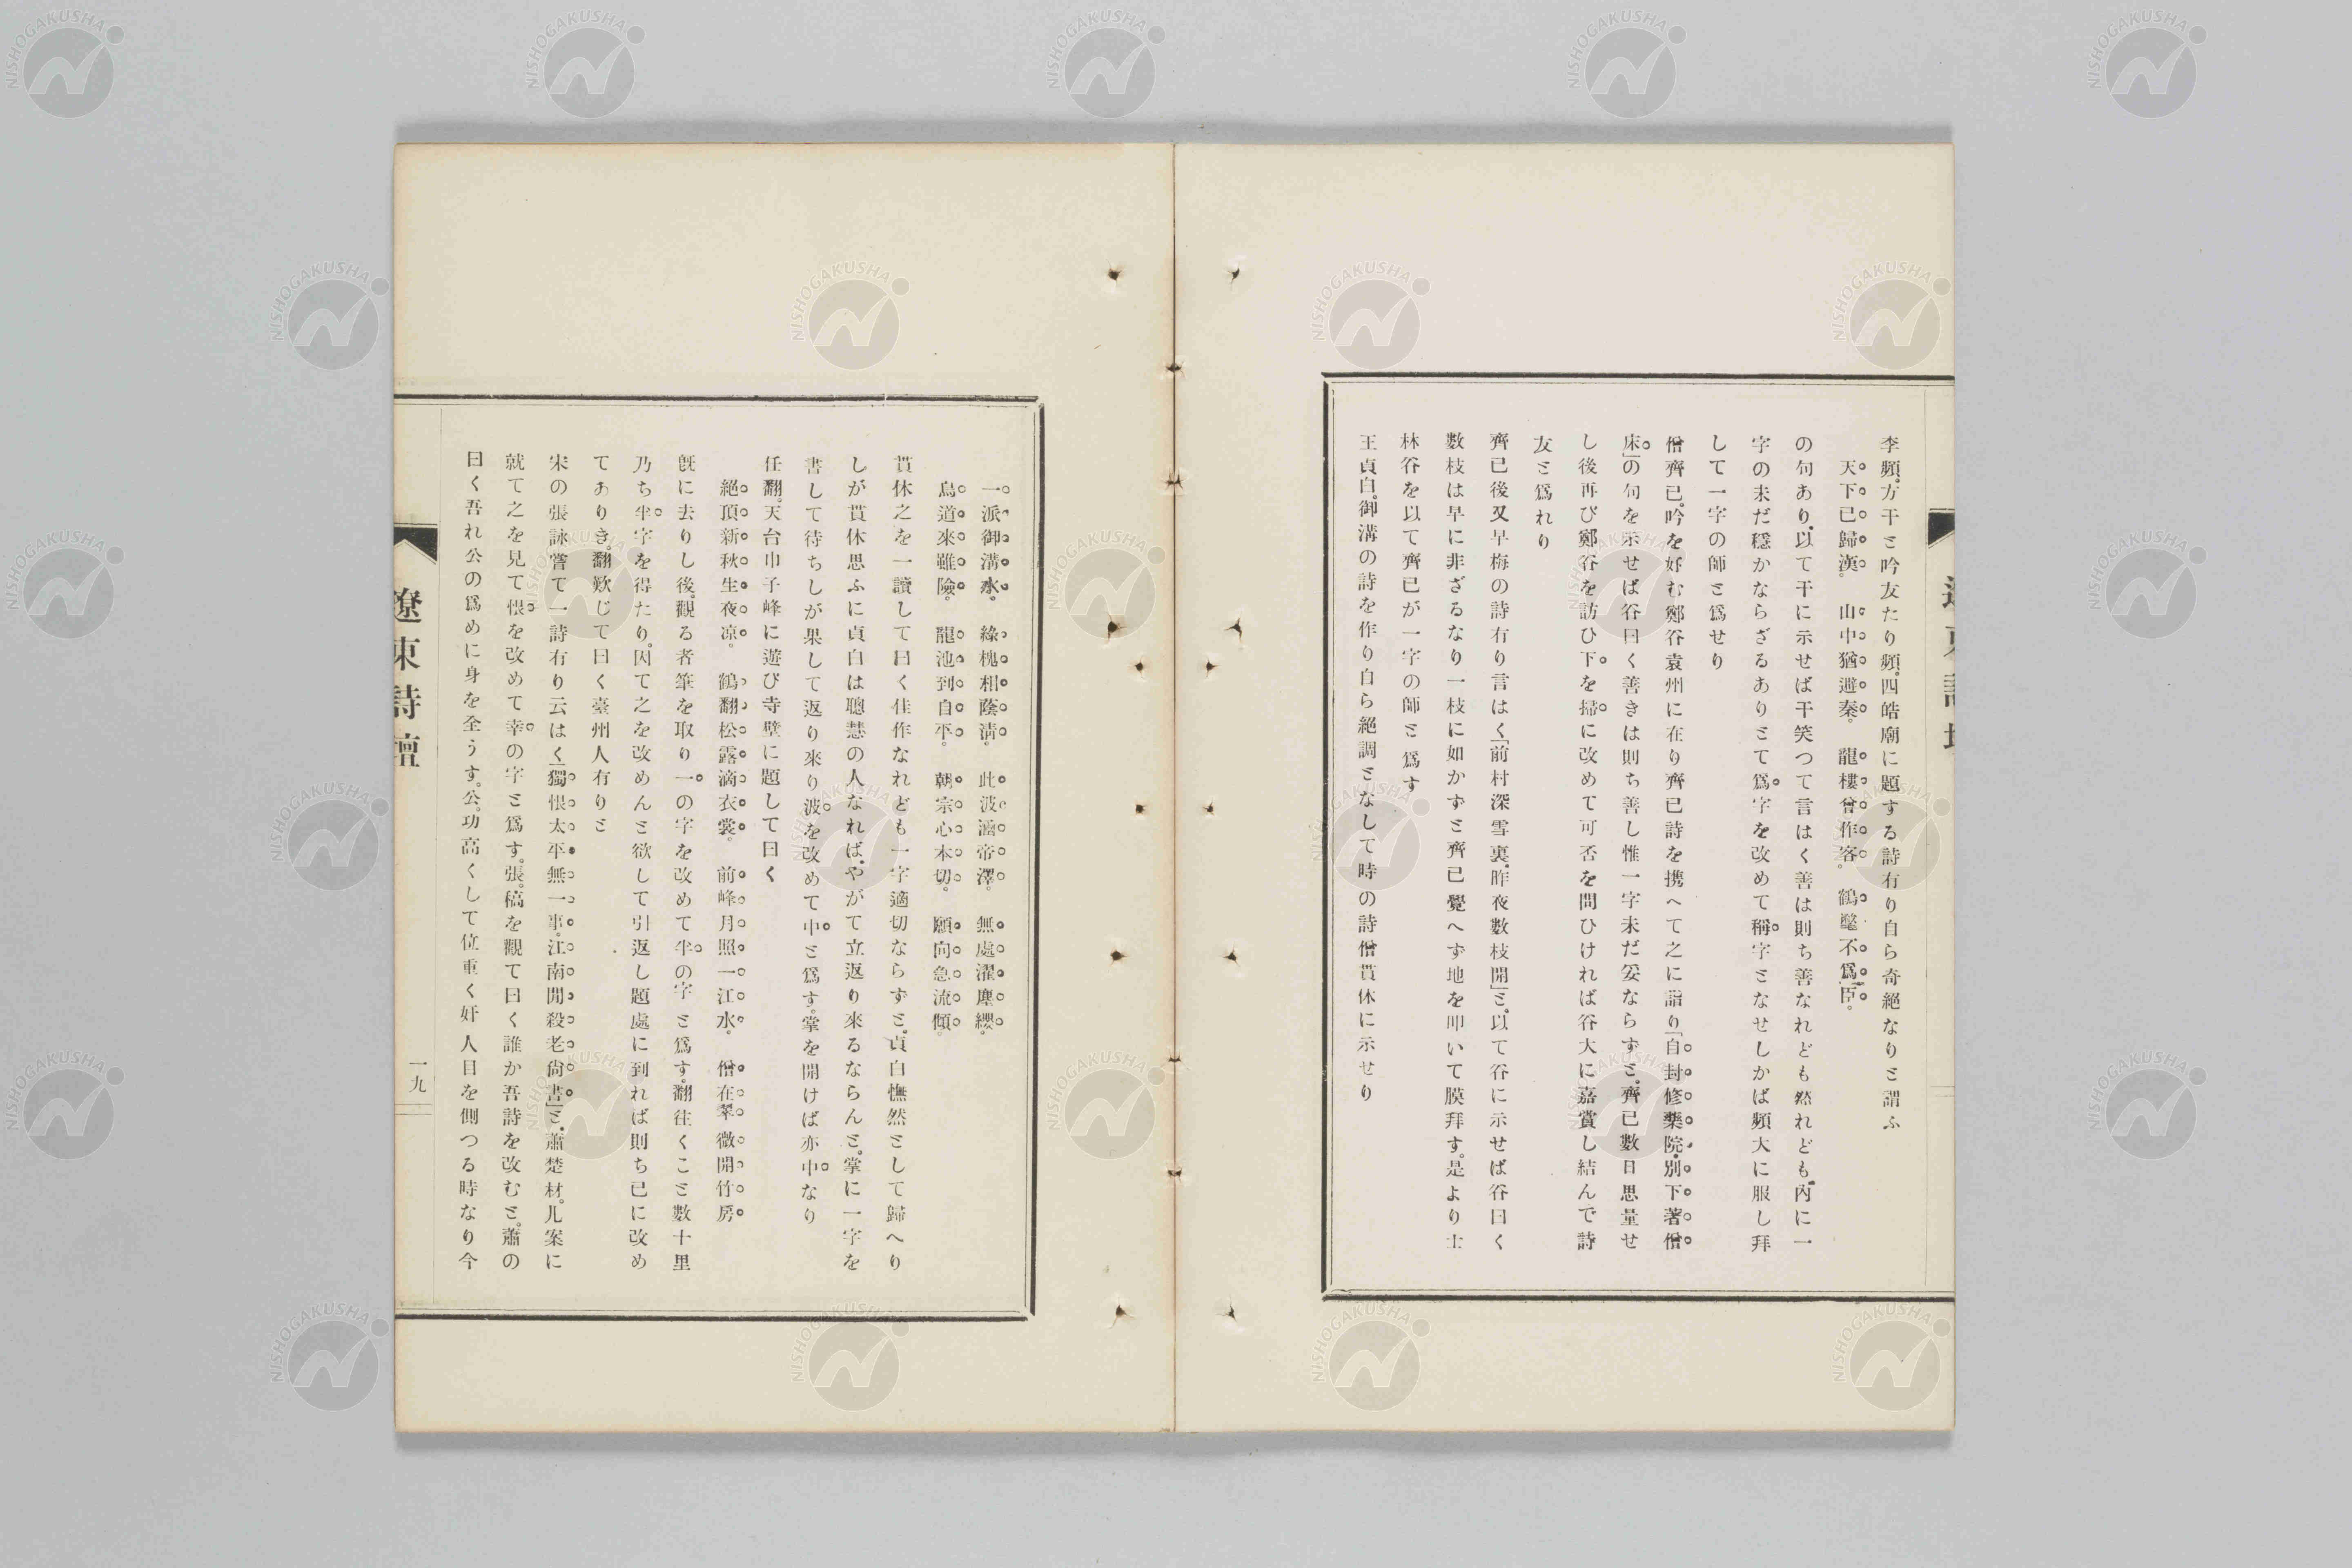 李頻。方干と吟友たり頻。四皓廟に題する詩有り自ら奇絕なりと謂ふ
天下已歸漢。山中猶避秦。龍樓曾作客。鶴氅不爲臣。
の句あり、以て干に示せば干笑つて言はく善は則ち善なれども然れども內に一
字の未だ穩かならざるありとて爲字を改めて稱字となせしかば頻大に服し拜
して一字の師と爲せり
僧齊已。吟を好む鄭谷袁州に在り齊已詩を携へて之に詣り「自封修藥院、別下著僧
床」の句を示せば谷曰く善きは則ち善し惟一字未だ妥ならずと。齊已數日思量せ
し後再び鄭谷を訪ひ下を掃に改めて可否を問ひければ谷大に嘉賞し結んで詩
友と爲れり
齊已後又早梅の詩有り言はく「前村深雪裏、昨夜數枝開」と。以て谷に示せば谷曰く
數枝は早に非ざるなり一枝に如かずと齊已覺へず地を叩いて膜拜す。是より士
林谷を以て齊已が一字の師と爲す
王貞白。御溝の詩を作り自ら絕調となして時の詩僧貫休に示せり
一派御溝水。綠槐相蔭淸。此波涵帝澤。無處濯塵纓。
鳥道來雖險。龍池到自平。朝宗心本切。願向急流傾。
貫休之を一讀して曰く佳作なれども一字適切ならずと。貞白憮然として歸へり
しが貫休思ふに貞白は聰慧の人なれば、やがて立返り來るならんと。掌に一字を
書して待ちしが果して返り來り波を改めて中と爲す。掌を開けば亦中なり
任翻。天台巾子峰に遊び寺壁に題して曰く
絕頂新秋生夜凉。鶴翻松露滴衣裳。前峰月照一江水。僧在翠微開竹房
旣に去りし後。觀る者筆を取り一の字を改めて半の字と爲す。翻往くこと數十里
乃ち半字を得たり。因て之を改めんと欲して引返し題處に到れば則ち已に改め
てありき。翻歎じて曰く臺州人有りと
宋の張詠嘗て一詩有り云はく「獨恨太平無一事。江南閒殺老尙書」と、蕭楚材。几案に
就て之を見て恨を改めて幸の字と爲す。張。稿を觀て曰く誰か吾詩を改むと。蕭の
曰く吾れ公の爲めに身を全うす。公。功高くして位重く奸人目を側つる時なり今
遼東詩壇
一九